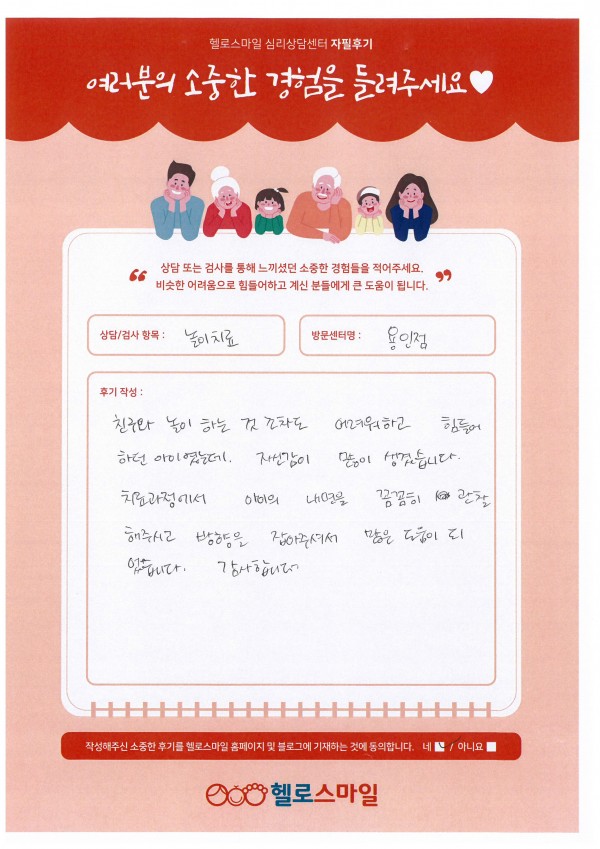 헬로스마일 심리상담센터 자필후기
여러분의 소중한 경험을 들려주세요
상담 또는 검사를 통해 느끼셨던 소중한 경험들을 적어주세요.
비슷한 어려움으로 힘들어하고 계신 분들에게 큰 도움이 됩니다.
상담/검사 항목 : 놀이치료
방문센터명 : 용인점
후기 작성 :
친구와 놀이 하는 것 조차도 어려워하고 힘들어
하던 아이였는데. 자신감이 많이 생겼습니다.
치료과정에서 아이의 내면을 꼼꼼히 관찰
해주시고 방향을 잡아주셔서 많은 도움이 되
었습니다. 감사합니다
작성해주신 소중한 후기를 헬로스마일 홈페이지 및 블로그에 기재하는 것에 동의합니다. 네 / 아니요
헬로스마일